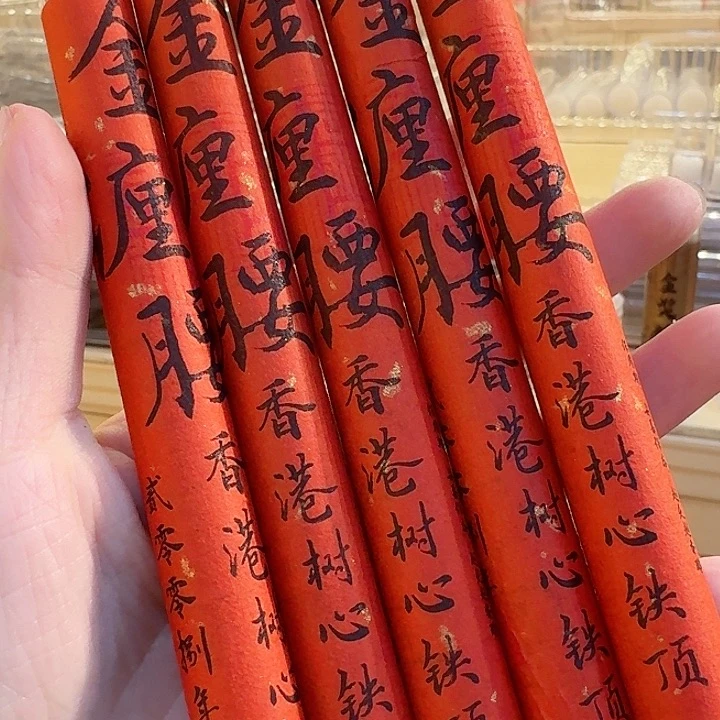 金厘腰
香港树心
贰零零捌年
金厘腰
香港树心铁
金厘腰
香港树心铁顶
金厘腰
香港树心铁顶
厘腰
香港树心铁顶